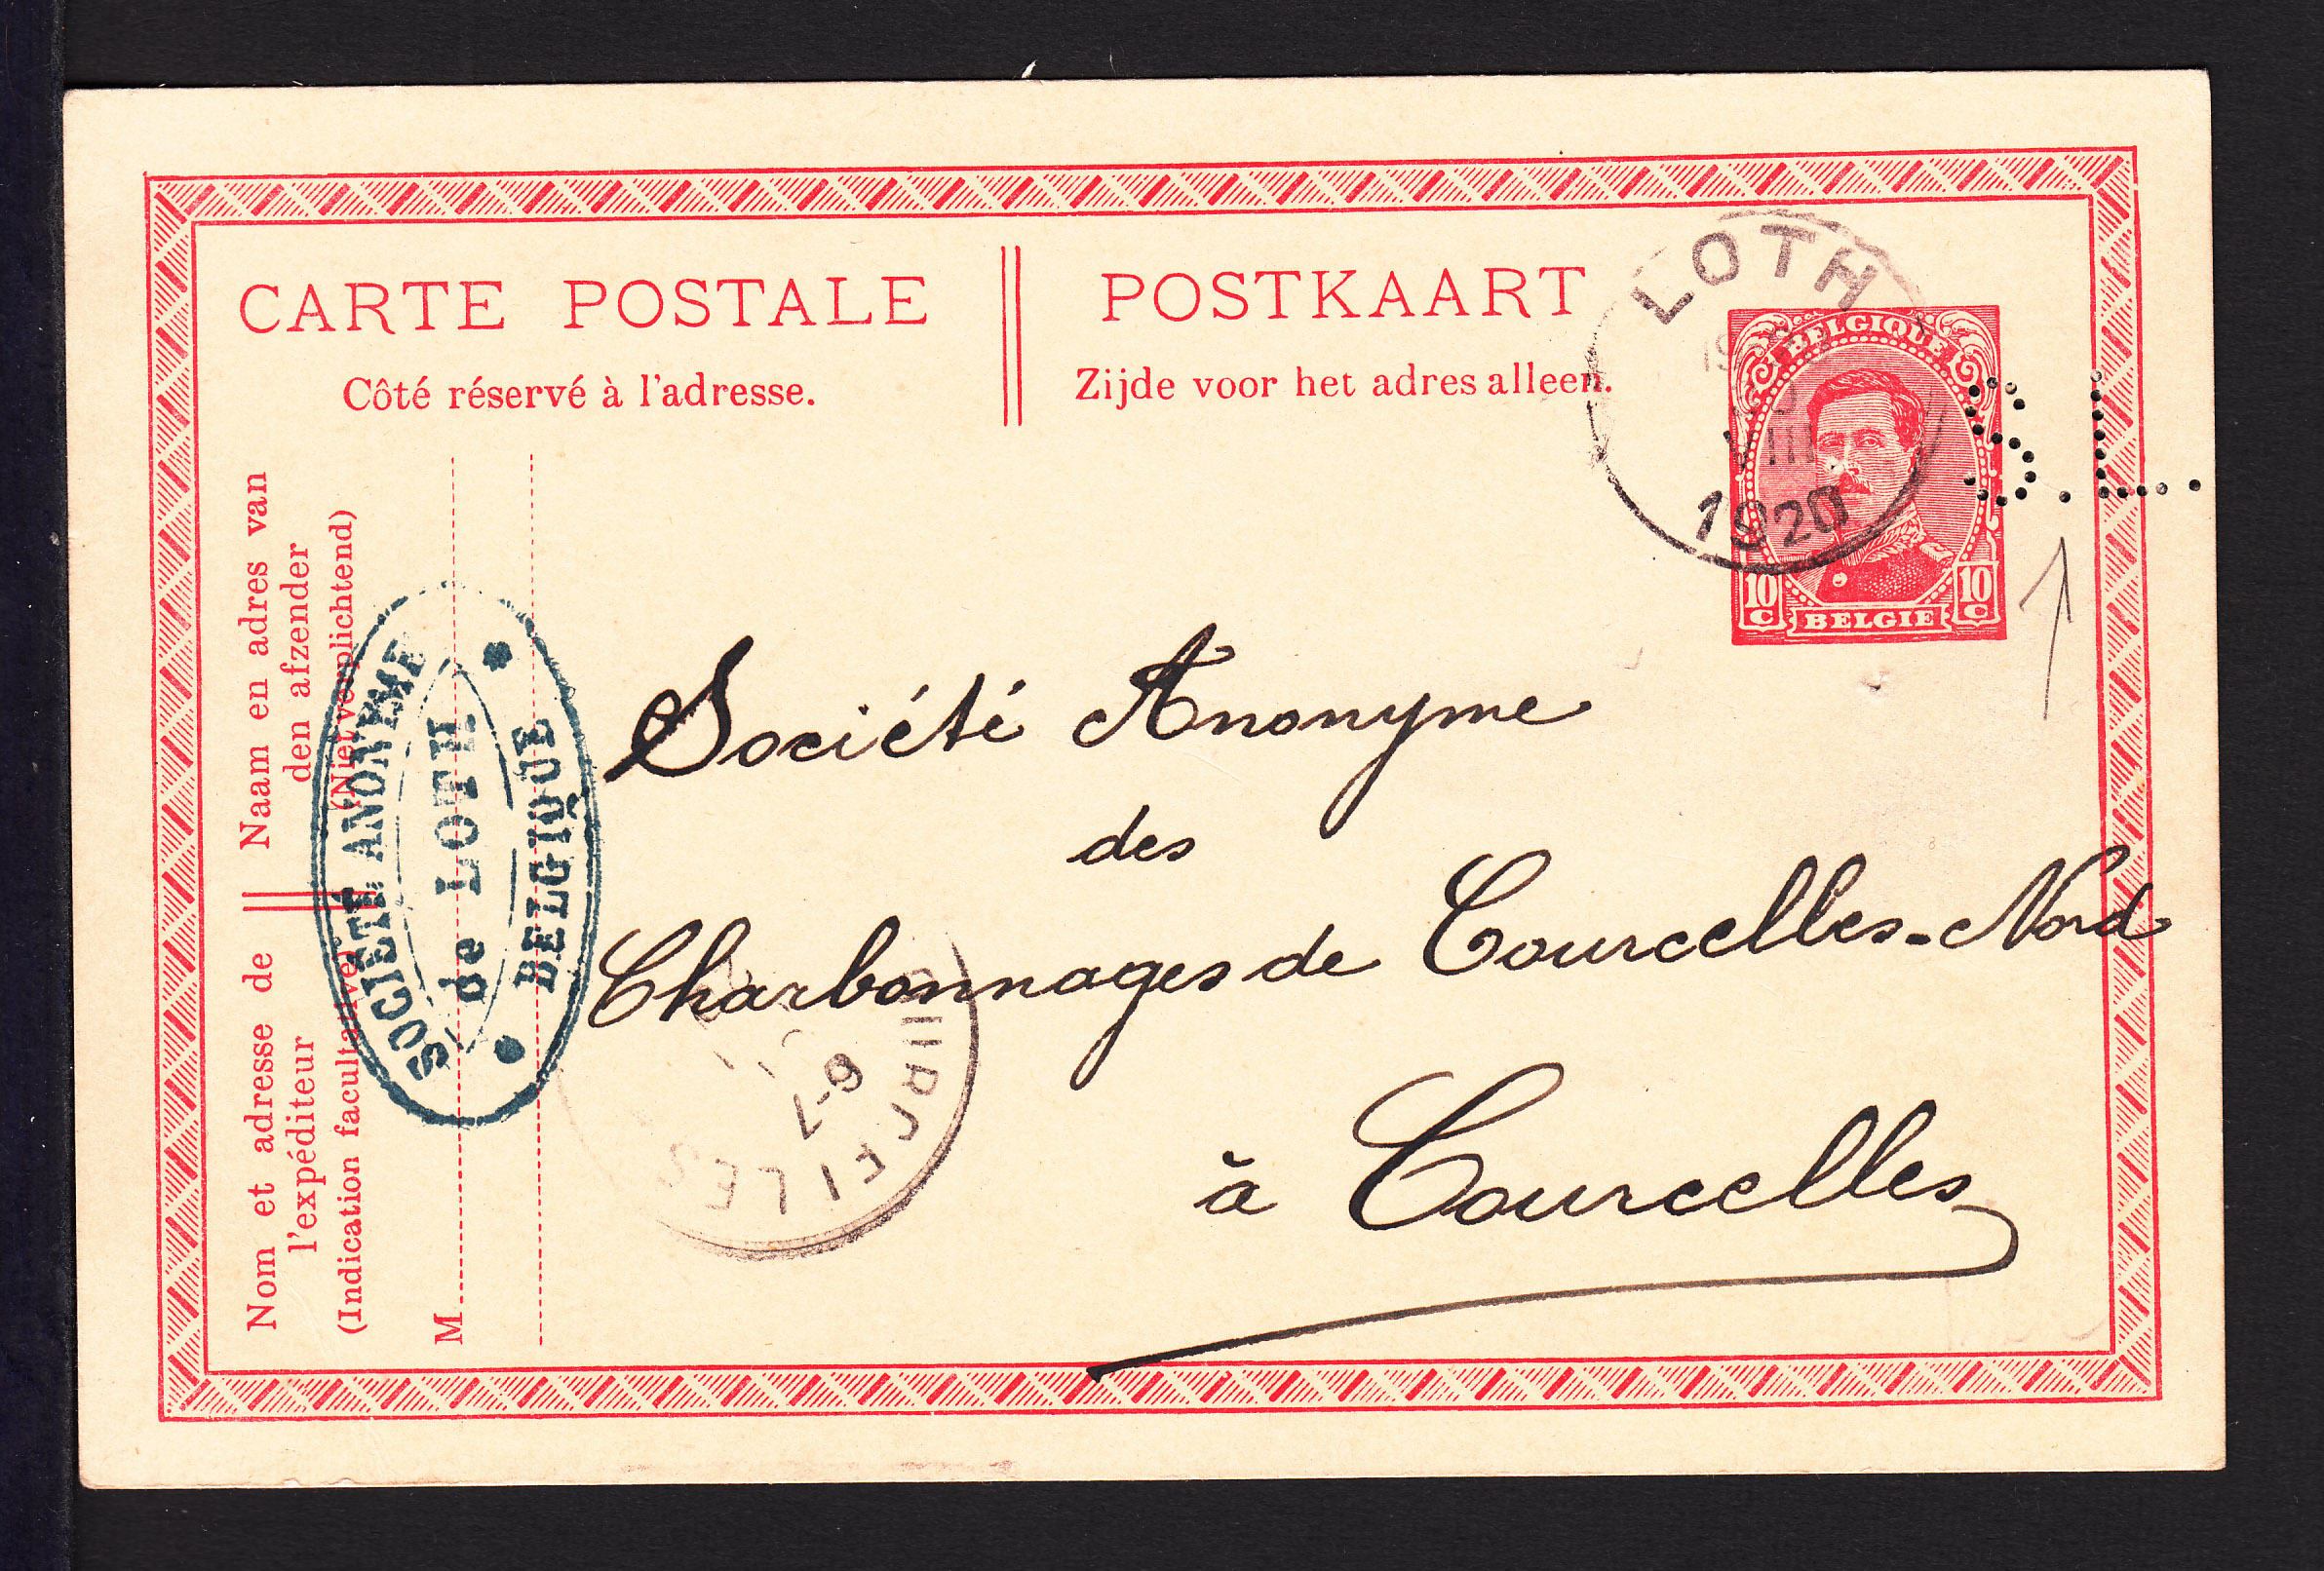 CARTE POSTALE
Côté réservé à l'adresse.
POSTKAART
Zijde voor het adres alleen.
LOTH
VIII
1920
BELGIQUE
10 C
10 C
BELGIE
S.L.
Naam en adres van
den afzender
(Niet verplichtend)
Nom et adresse de
l'expéditeur
(Indication facultative)
M
SOCIÉTÉ ANONYME
de LOTH
BELGIQUE
Société Anonyme
des
Charbonnages de Courcelles-Nord
à Courcelles
6-7